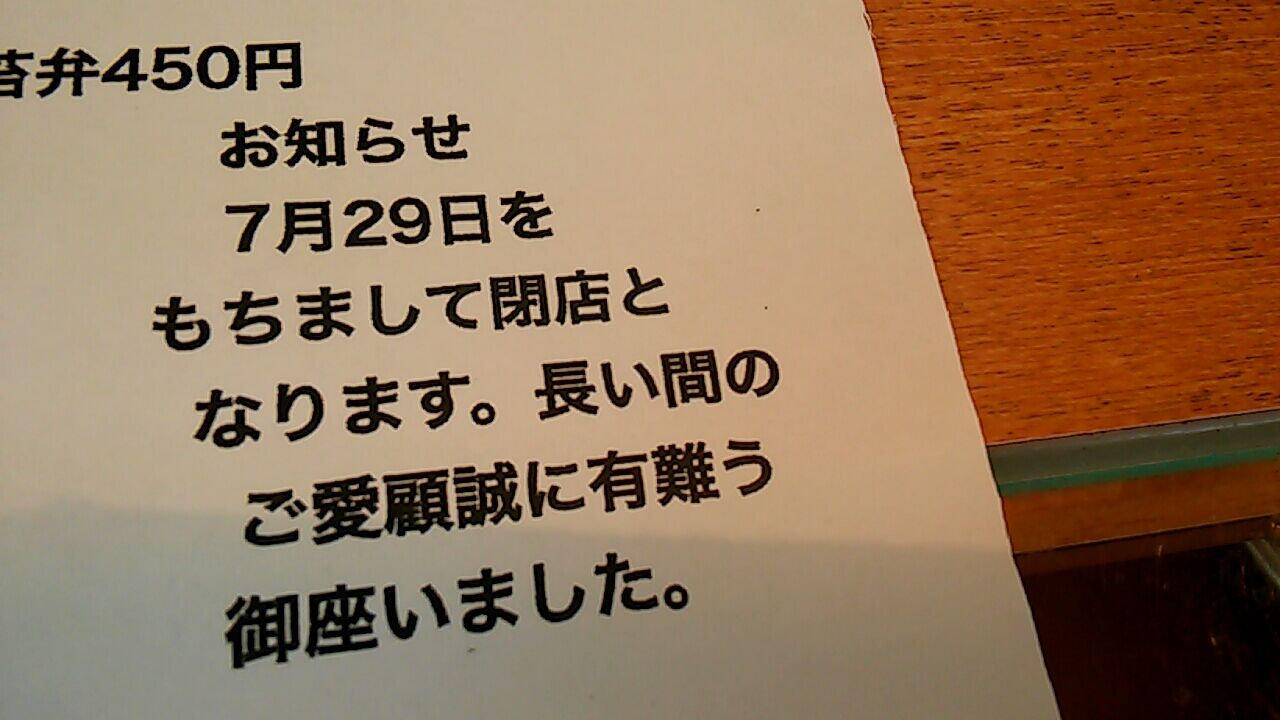 苔弁450円
お知らせ
7月29日を
もちまして閉店と
なります。長い間の
ご愛顧誠に有難う
御座いました。